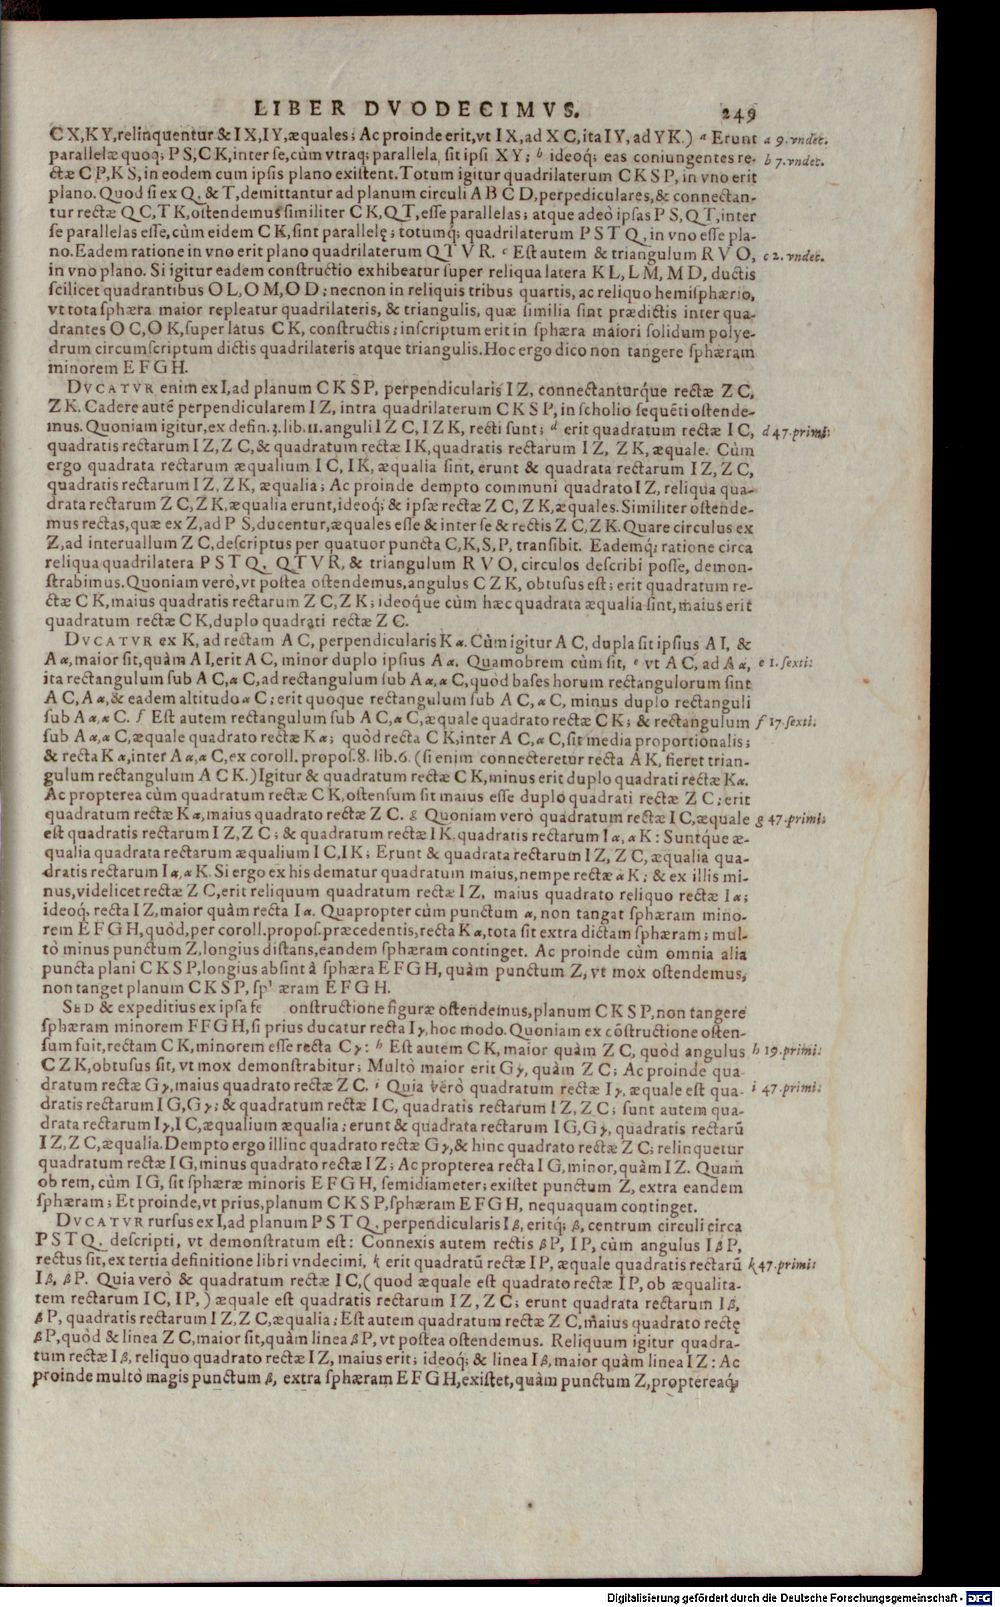 LIBER DVODECIMVS. 249
CX, KY, relinquentur & IX, IY, æquales; Ac proinde erit, vt IX, ad XC, ita IY, ad YK.) ᵃ Erunt a 9. vndec.
parallelæ quoq; PS, CK, inter se, cùm vtraq; parallela sit ipsi XY; ᵇ ideoq; eas coniungentes re- b 7. vndec.
ctæ CP, KS, in eodem cum ipsis plano existent. Totum igitur quadrilaterum CKSP, in vno erit
plano. Quod si ex Q, & T, demittantur ad planum circuli ABCD, perpediculares, & connectan-
tur rectæ QC, TK, ostendemus similiter CK, QT, esse parallelas; atque adeò ipsas PS, QT, inter
se parallelas esse, cùm eidem CK, sint parallelę; totumq; quadrilaterum PSTQ, in vno esse pla-
no. Eadem ratione in vno erit plano quadrilaterum QTVR. ᶜ Est autem & triangulum RVO, c 2. vndec.
in vno plano. Si igitur eadem constructio exhibeatur super reliqua latera KL, LM, MD, ductis
scilicet quadrantibus OL, OM, OD; necnon in reliquis tribus quartis, ac reliquo hemisphærio,
vt tota sphæra maior repleatur quadrilateris, & triangulis, quæ similia sint prædictis inter qua-
drantes OC, OK, super latus CK, constructis; inscriptum erit in sphæra maiori solidum polye-
drum circumscriptum dictis quadrilateris atque triangulis. Hoc ergo dico non tangere sphæram
minorem EFGH.
DVCATVR enim ex I, ad planum CKSP, perpendicularis IZ, connectanturq́ue rectæ ZC,
ZK. Cadere autē perpendicularem IZ, intra quadrilaterum CKSP, in scholio sequēti ostende-
mus. Quoniam igitur, ex defin. 3. lib. 11. anguli IZC, IZK, recti sunt; ᵈ erit quadratum rectæ IC, d 47. primi:
quadratis rectarum IZ, ZC, & quadratum rectæ IK, quadratis rectarum IZ, ZK, æquale. Cùm
ergo quadrata rectarum æqualium IC, IK, æqualia sint, erunt & quadrata rectarum IZ, ZC,
quadratis rectarum IZ, ZK, æqualia; Ac proinde dempto communi quadrato IZ, reliqua qua-
drata rectarum ZC, ZK, æqualia erunt, ideoq; & ipsæ rectæ ZC, ZK, æquales. Similiter ostende-
mus rectas, quæ ex Z, ad PS, ducentur, æquales esse & inter se & rectis ZC, ZK. Quare circulus ex
Z, ad interuallum ZC, descriptus per quatuor puncta C, K, S, P, transibit. Eademq; ratione circa
reliqua quadrilatera PSTQ, QTVR, & triangulum RVO, circulos describi posse, demon-
strabimus. Quoniam verò, vt postea ostendemus, angulus CZK, obtusus est; erit quadratum re-
ctæ CK, maius quadratis rectarum ZC, ZK; ideoq́ue cùm hæc quadrata æqualia sint, maius erit
quadratum rectæ CK, duplo quadrati rectæ ZC.
DVCATVR ex K, ad rectam AC, perpendicularis Kα. Cùm igitur AC, dupla sit ipsius AI, &
Aα, maior sit, quàm AI, erit AC, minor duplo ipsius Aα. Quamobrem cùm sit, ᵉ vt AC, ad Aα, e 1. sexti:
ita rectangulum sub AC, αC, ad rectangulum sub Aα, αC, quòd bases horum rectangulorum sint
AC, Aα, & eadem altitudo αC; erit quoque rectangulum sub AC, αC, minus duplo rectanguli
sub Aα, αC. f Est autem rectangulum sub AC, αC, æquale quadrato rectæ CK; & rectangulum f 17. sexti:
sub Aα, αC, æquale quadrato rectæ Kα; quòd recta CK, inter AC, αC, sit media proportionalis;
& recta Kα, inter Aα, αC, ex coroll. propos. 8. lib. 6. (si enim connecteretur recta AK, fieret trian-
gulum rectangulum ACK.) Igitur & quadratum rectæ CK, minus erit duplo quadrati rectæ Kα.
Ac propterea cùm quadratum rectæ CK, ostensum sit maius esse duplo quadrati rectæ ZC; erit
quadratum rectæ Kα, maius quadrato rectæ ZC. g Quoniam verò quadratum rectæ IC, æquale g 47. primi:
est quadratis rectarum IZ, ZC; & quadratum rectæ IK, quadratis rectarum Iα, αK: Suntq́ue æ-
qualia quadrata rectarum æqualium IC, IK; Erunt & quadrata rectarum IZ, ZC, æqualia qua-
dratis rectarum Iα, αK. Si ergo ex his dematur quadratum maius, nempe rectæ αK; & ex illis mi-
nus, videlicet rectæ ZC, erit reliquum quadratum rectæ IZ, maius quadrato reliquo rectæ Iα;
ideoq; recta IZ, maior quàm recta Iα. Quapropter cùm punctum α, non tangat sphæram mino-
rem EFGH, quòd, per coroll. propos. præcedentis, recta Kα, tota sit extra dictam sphæram; mul-
tò minus punctum Z, longius distans, eandem sphæram continget. Ac proinde cùm omnia alia
puncta plani CKSP, longius absint à sphæra EFGH, quàm punctum Z, vt mox ostendemus,
non tanget planum CKSP, sp æram EFGH.
SED & expeditius ex ipsa fe onstructione figuræ ostendemus, planum CKSP, non tangere
sphæram minorem FFGH, si prius ducatur recta Iγ, hoc modo. Quoniam ex cōstructione osten-
sum fuit, rectam CK, minorem esse recta Cγ: ʰ Est autem CK, maior quàm ZC, quòd angulus h 19. primi:
CZK, obtusus sit, vt mox demonstrabitur; Multò maior erit Gγ, quàm ZC; Ac proinde qua
dratum rectæ Gγ, maius quadrato rectæ ZC. ⁱ Quia verò quadratum rectæ Iγ, æquale est qua- i 47. primi:
dratis rectarum IG, Gγ; & quadratum rectæ IC, quadratis rectarum IZ, ZC; sunt autem qua-
drata rectarum Iγ, IC, æqualium æqualia; erunt & quadrata rectarum IG, Gγ, quadratis rectarū
IZ, ZC, æqualia. Dempto ergo illinc quadrato rectæ Gγ, & hinc quadrato rectæ ZC; relinquetur
quadratum rectæ IG, minus quadrato rectæ IZ; Ac propterea recta IG, minor, quàm IZ. Quam
ob rem, cùm IG, sit sphæræ minoris EFGH, semidiameter; existet punctum Z, extra eandem
sphæram; Et proinde, vt prius, planum CKSP, sphæram EFGH, nequaquam continget.
DVCATVR rursus ex I, ad planum PSTQ, perpendicularis Iβ, eritq; β, centrum circuli circa
PSTQ, descripti, vt demonstratum est: Connexis autem rectis βP, IP, cùm angulus IβP,
rectus sit, ex tertia definitione libri vndecimi, k erit quadratū rectæ IP, æquale quadratis rectarū k 47. primi:
Iβ, βP. Quia verò & quadratum rectæ IC, (quod æquale est quadrato rectæ IP, ob æqualita-
tem rectarum IC, IP,) æquale est quadratis rectarum IZ, ZC; erunt quadrata rectarum Iβ,
βP, quadratis rectarum IZ, ZC, æqualia; Est autem quadratum rectæ ZC, maius quadrato rectę
βP, quòd & linea ZC, maior sit, quàm linea βP, vt postea ostendemus. Reliquum igitur quadra-
tum rectæ Iβ, reliquo quadrato rectæ IZ, maius erit; ideoq; & linea Iβ, maior quàm linea IZ: Ac
proinde multò magis punctum β, extra sphæram EFGH, existet, quàm punctum Z, proptereaq;
Digitalisierung gefördert durch die Deutsche Forschungsgemeinschaft - DFG